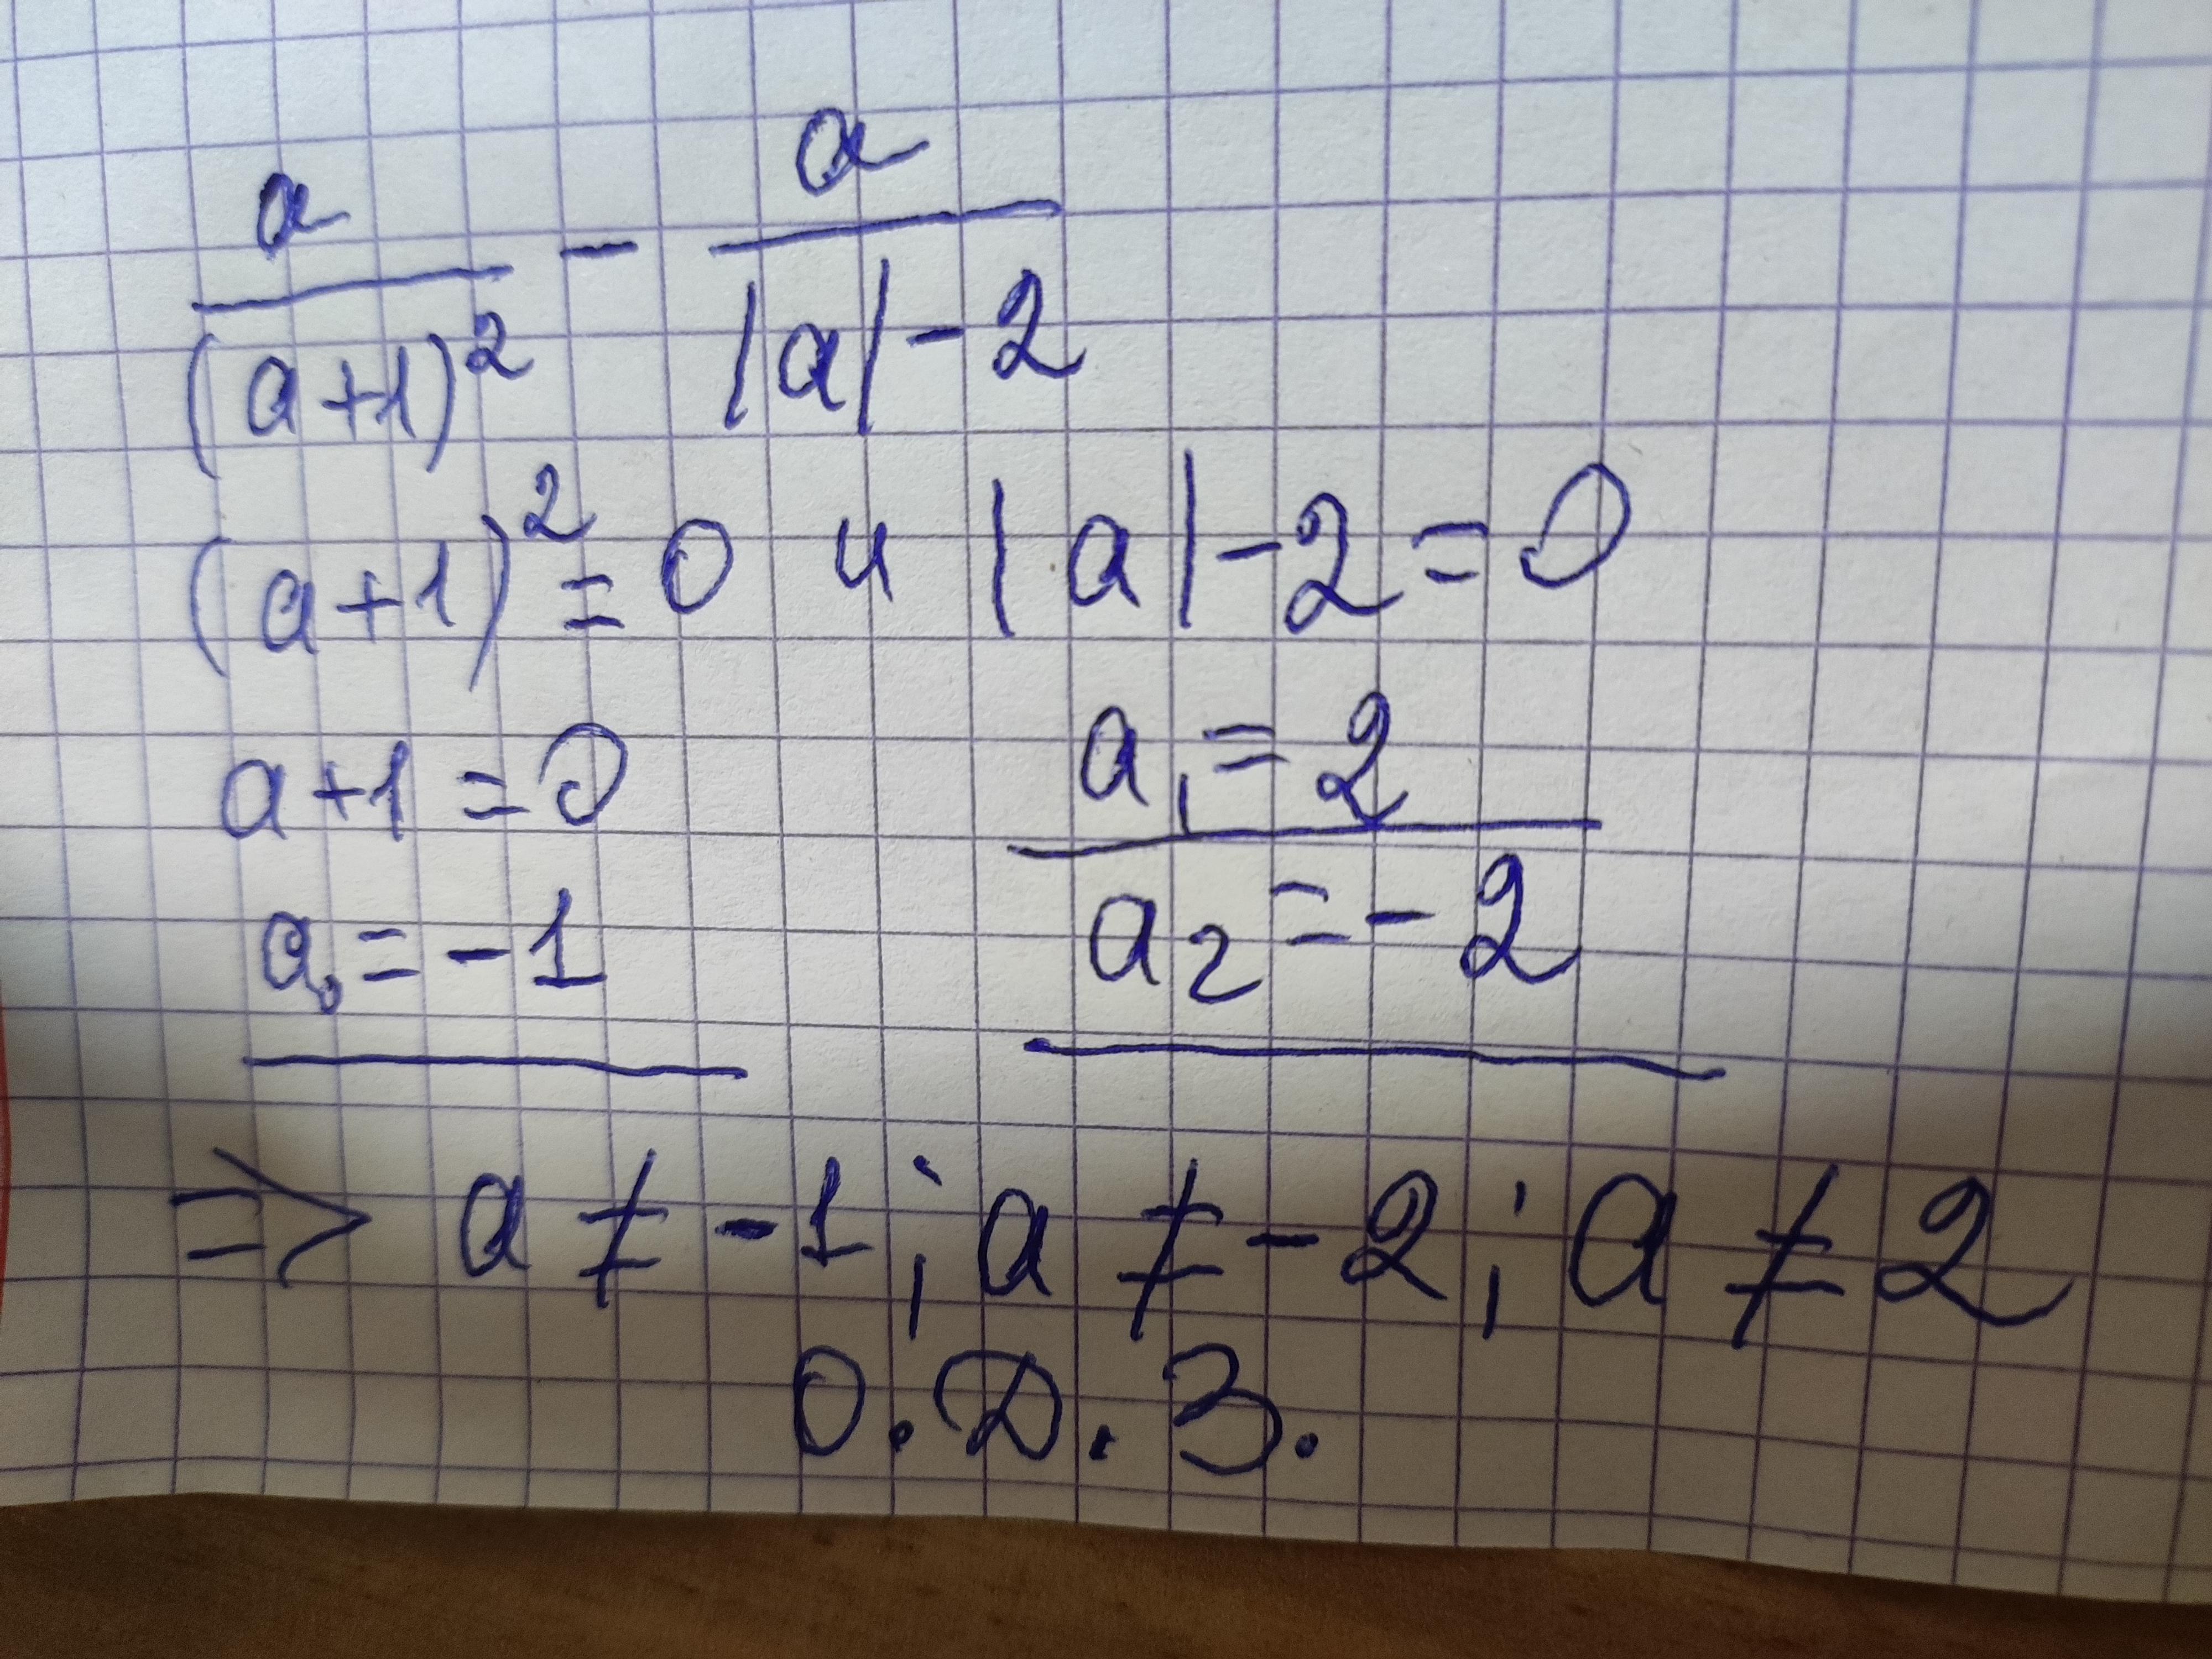 a/(a+1)² - a/(|a|-2)
(a+1)² = 0 и |a|-2=0
a+1=0 a₁=2
a₀=-1 a₂=-2
=> a ≠ -1; a ≠ -2; a ≠ 2
О.Д.З.